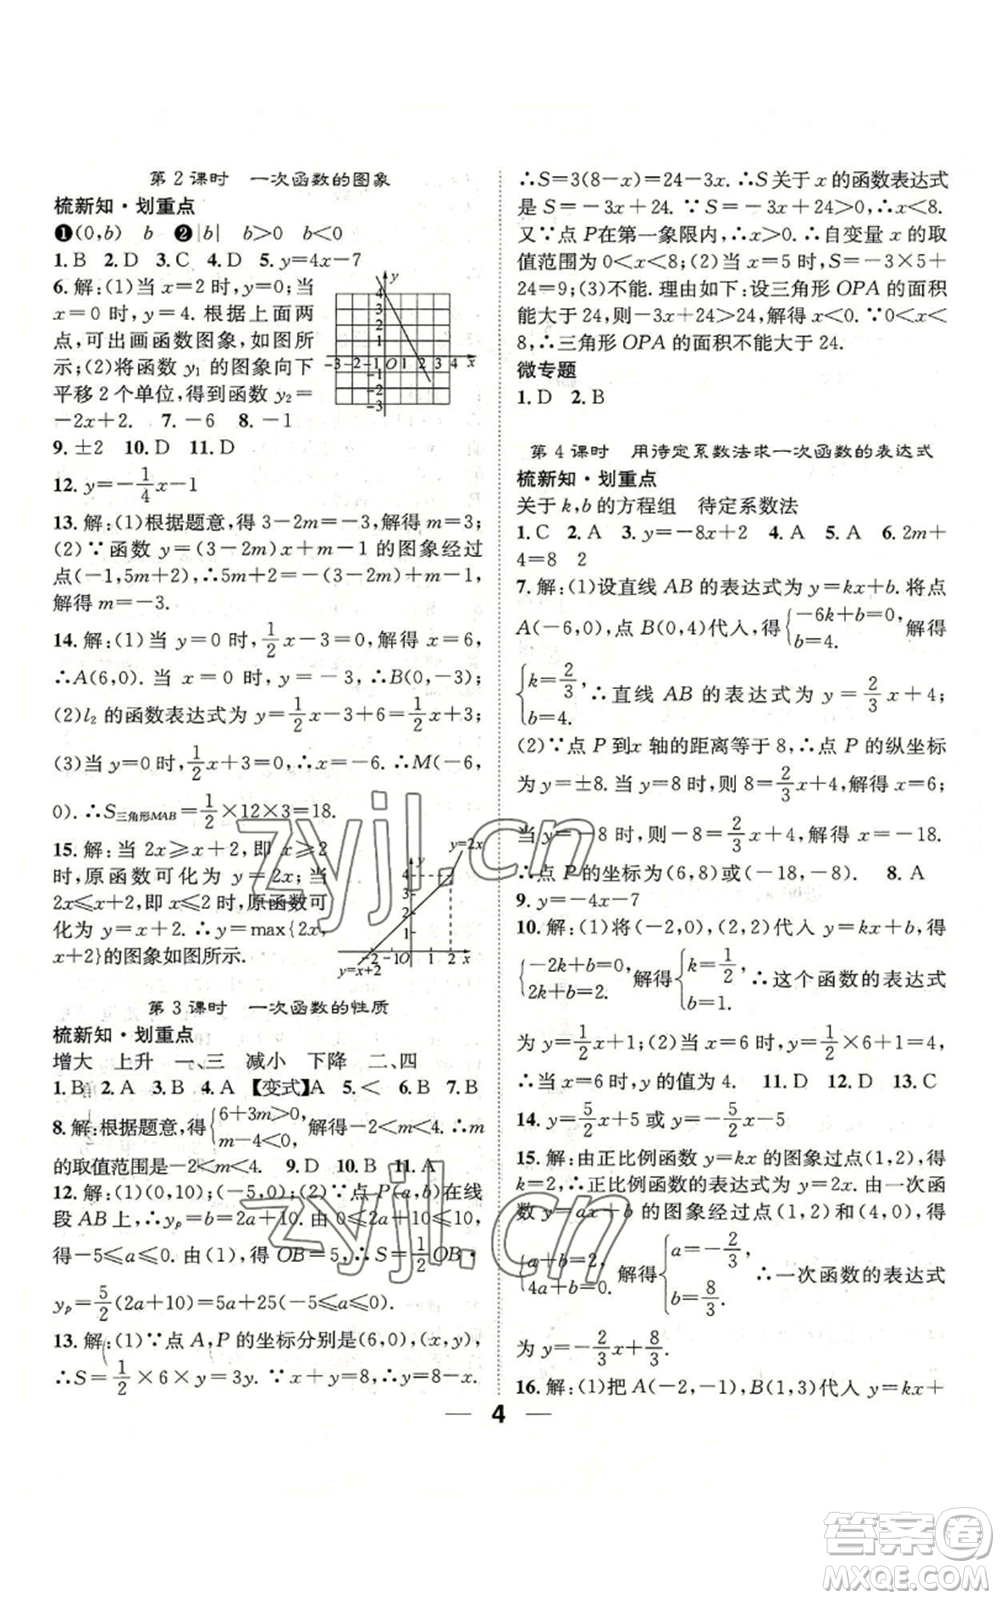 第2课时　一次函数的图象
梳新知·划重点
❶(0,b)　b　❷|b|　b>0　b<0
1. B　2. D　3. C　4. D　5. y=4x-7
6. 解:(1)当 x=2 时, y=
0;当 x=0 时, y=4. 根据上面两
点,可出画函数图象如图所
示;(2)将函数 y₁ 的图象向下
平移 2 个单位,得到函数 y₂=
-2x+2.　7. -6　8. -1
9. ±2　10. D　11. D
12. y=-1/4x-1
13. 解:(1)根据题意,得 3-2m=-3,解得 m=3;
(2)∵函数 y=(3-2m)x+m 的图象经过
点(-1,5m+2),∴5m+2=-(3-2m)+m,
解得 m=-3.
14. 解:(1)当 y=0 时, 1/2x-3=0,解得 x=6,
∴A(6,0). 当 x=0 时, y=-3,∴B(0,-3);
(2)l₂ 的函数表达式为 y=1/2x-3+6=1/2x+3;
(3)当 y=0 时, 1/2x+3=0,解得 x=-6,∴M(-6,
0). ∴S三角形MAB=1/2×12×3=18.
15. 解:当 2x≥x+2,即 x≥2
时,原函数可化为 y=2x;当
2x≤x+2,即 x≤2 时,原函数可
化为 y=x+2. ∴y=max{2x,
x+2}的图象如图所示.
第3课时　一次函数的性质
梳新知·划重点
增大　上升　一、三　减小　下降　二、四
1. B　2. A　3. B　4. A　【变式】A　5. <　6. B　7. B
8. 解:根据题意,得{6+3m>0, m-4<0, 解得-2<m<4. ∴m
的取值范围是-2<m<4.　9. D　10. B　11. A
12. 解:(1)(0,10);(-5,0);(2)∵点 P(a,b)在线
段 AB 上,∴yₚ=b=2a+10. 由 0≤2a+10≤10,
得-5≤a≤0. 由(1),得 OB=5,∴S=1/2OB·
yₚ=5/2(2a+10)=5a+25(-5≤a≤0).
13. 解:(1)∵点 A,P 的坐标分别是(6,0),(x,y),
∴S=1/2×6×y=3y. ∵x+y=8,∴y=8-x.
∴S=3(8-x)=24-3x. ∴S 关于 x 的函数表达式
是 S=-3x+24. ∵S=-3x+24>0,∴x<8.
又∵点 P在第一象限内,∴x>0. ∴自变量 x 的取
值范围为 0<x<8;(2)当 x=5 时,S=-3×5+
24=9;(3)不能. 理由如下:设三角形 OPA 的面积
能大于 24,则-3x+24>24,解得 x<0. ∵0<x<
8,∴三角形 OPA 的面积不能大于 24.
微专题
1. D　2. B
第4课时　用待定系数法求一次函数的表达式
梳新知·划重点
关于 k,b 的方程组　待定系数法
1. C　2. A　3. y=-8x+2　4. A　5. A　6. 2m+
4=8　2
7. 解:(1)设直线 AB 的表达式为 y=kx+b. 将点
A(-6,0),点 B(0,4)代入,得{-6k+b=0, b=4. 解得
{k=2/3, b=4. ∴直线 AB 的表达式为 y=2/3x+4;
(2)∵点 P 到x 轴的距离等于 8,∴点 P 的纵坐标
为 y=±8. 当 y=8 时,则 8=2/3x+4,解得 x=6;
当 y=-8 时,则-8=2/3x+4,解得 x=-18.
∴点 P 的坐标为(6,8)或(-18,-8).　8. A
9. y=-4x-7
10. 解:(1)将(-2,0),(2,2)代入 y=kx+b,得
{-2k+b=0, 2k+b=2. 解得{k=1/2, b=1. ∴这个函数的表达式
为 y=1/2x+1;(2)当 x=6 时, y=1/2×6+1=4,
∴当 x=6 时, y 的值为 4.　11. D　12. D　13. C
14. y=5/2x+5 或 y=-5/2x-5
15. 解:由正比例函数 y=kx 的图象过点(1,2),得
k=2,∴正比例函数的表达式为 y=2x. 由一次函
数 y=ax+b 的图象经过点(1,2)和(4,0),得
{a+b=2, 4a+b=0. 解得{a=-2/3, b=8/3. ∴一次函数的表达式
为 y=-2/3x+8/3.
16. 解:(1)把 A(-2,-1),B(1,3)代入 y=kx+
4
zyjl.cn
zyjl.cn
答案圈
MXQE.COM